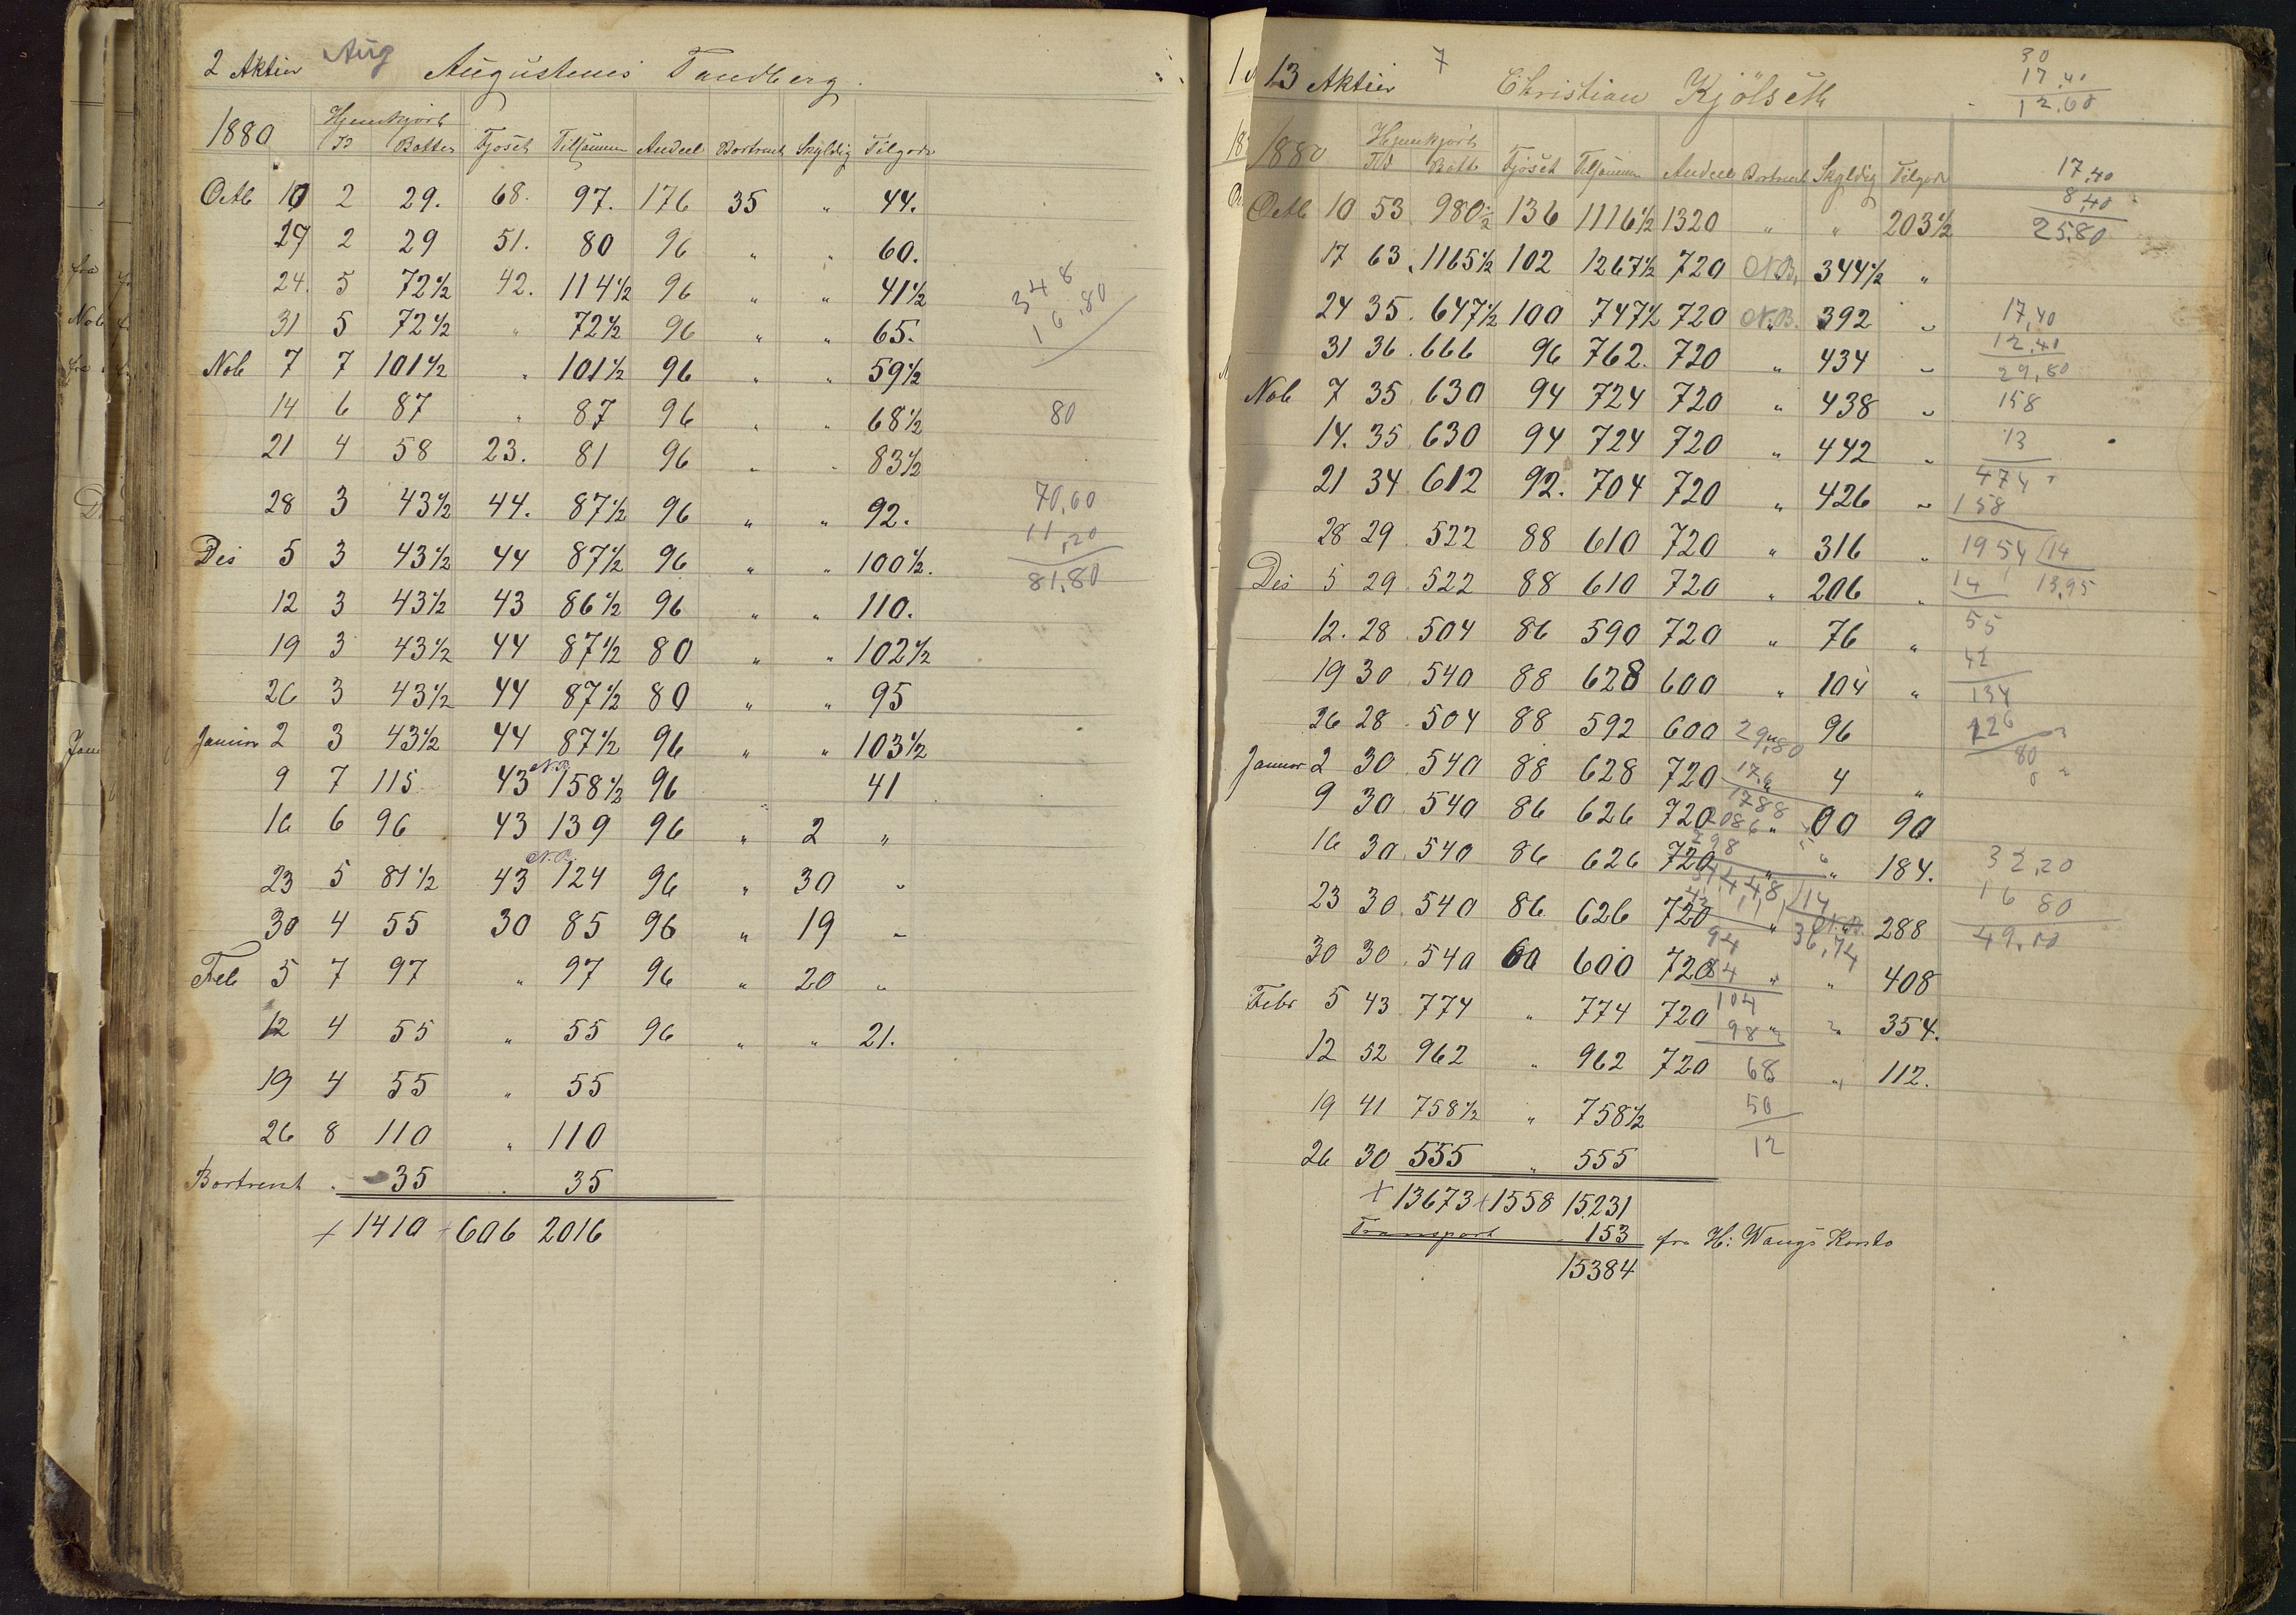 2 Aktier Aug Augustenus Tandberg.
1880 Hjemkjört
B Bøtter Fjöset Tilsammen Andeel Bortsendt Skyldig Tilgode
Octb 10 2 29. 68. 97. 176 35 " 44.
17 2 29 51. 80 96 " " 60.
24. 5 72½ 42. 114½ 96 " " 41½
31 5 72½ " 72½ 96 " " 65.
Nob 7 7 101½ " 101½ 96 " " 59½
14 6 87 " 87 96 " " 68½
21 4 58 23. 81 96 " " 83½
28 3 43½ 44. 87½ 96 " " 92.
Des 5 3 43½ 44 87½ 96 " " 100½.
12 3 43½ 43 86½ 96 " " 110.
19 3 43½ 44 87½ 80 " " 102½
26 3 43½ 44 87½ 80 " " 95
Januar 2 3 43½ 44 87½ 96 " " 103½
9 7 115 43 N.B. 158½ 96 " 41
16 6 96 43 139 96 " 2 "
23 5 81½ 43 N.B. 124 96 " 30 "
30 4 55 30 85 96 " 19 "
Feb 5 7 97 " 97 96 " 20 "
12 4 55 " 55 96 " " 21.
19 4 55 " 55
26 8 110 " 110
Bortsendt . 35 . 35
+ 1410 + 606 2016
348
16.80
80
70,60
11,20
81,80
13 Aktier 7 Christian Kjölseth
1880 Hjemkjört
Bøtt Fjöset Tilsammen Andeel Bortsendt Skyldig Tilgode
Octb 10 53 980½ 136 1116½ 1320 " " 203½
17 63 1165½ 102 1267½ 720 N.B. 344½ "
24 35 647½ 100 747½ 720 N.B. 392 "
31 36 666 96 762. 720 " 434 "
Nob 7 35 630 94 724 720 " 438 "
14. 35 630 94 724 720 " 442 "
21 34 612 92. 704 720 " 426 "
28 29 522 88 610 720 " 316 "
Des 5 29 522 88 610 720 " 206 "
12. 28 504 86 590 720 " 76 "
19 30 540 88 628 600 " 104 "
26 28 504 88 592 600 " 96
Januar 2 30 540 88 628 720 " 4 "
9 30 540 86 626 720 " 00 90
16 30 540 86 626 720 " " 184.
23 30 540 86 626 720 " N.B. 288
30 30 540 60 600 720 " " 408
Febr 5 43 774 " 774 720 " " 354.
12 52 962 " 962 720 " 112.
19 41 758½ " 758½
26 30 555 " 555
+ 13673 + 1558 15231
Transport 153 fra H: Wangs Konto
15384
29,80
17.6
1788
2086
298
14
94
36,74
84
104
98
68
50
12
30
17.40
12.60
17,40
8,40
25,80
17,40
12,40
29,80
158
13
474
158
1954 14
14 13,95
55
42
134
126
80
32,20
16 80
49,00